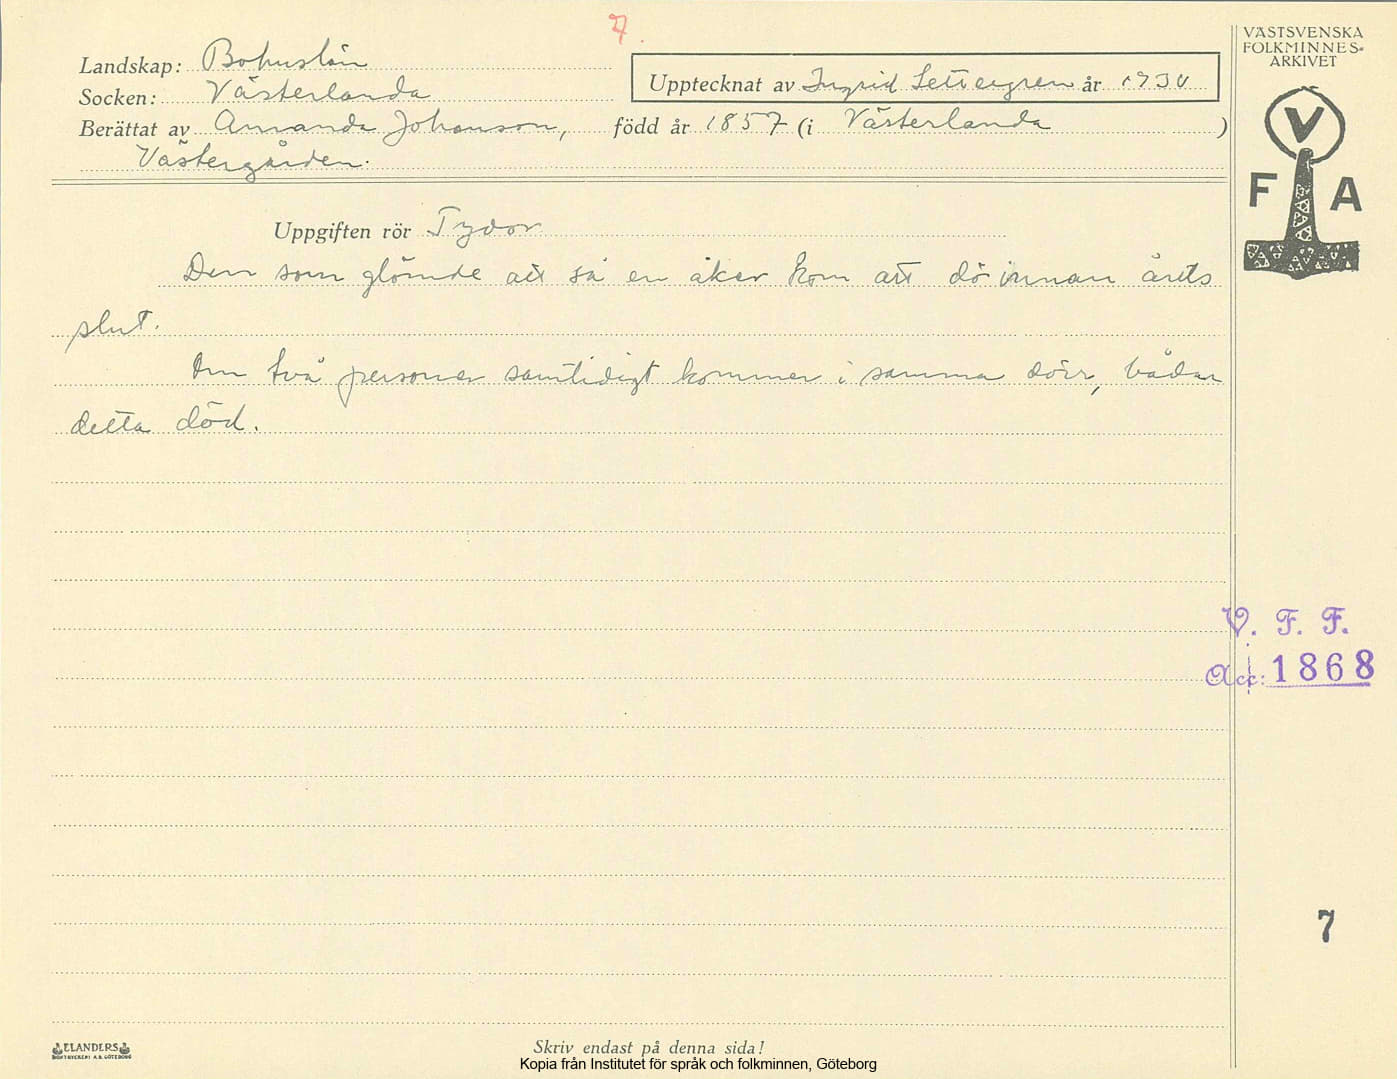 7.
VÄSTSVENSKA
FOLKMINNES-
ARKIVET
Landskap: Bohuslän
Upptecknat av Ingrid Settergren år 1930
Socken: Västerlanda
Berättat av Amanda Johanson, född år 1857 (i Västerlanda )
Västergården.
V
F A
Uppgiften rör Tydor
Den som glömde att så en åker kom att dö innan årets
slut.
Om två personer samtidigt kommer i samma dörr, bådar
detta död.
V. F. F.
Acc: 1868
7
ELANDERS
BOKTRYCKERI A.B. GÖTEBORG
Skriv endast på denna sida!
Kopia från Institutet för språk och folkminnen, Göteborg